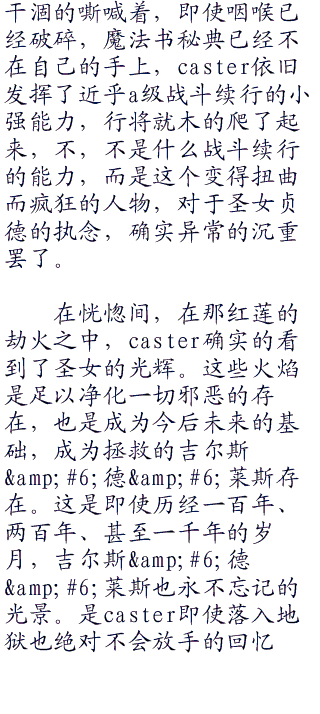 干涸的嘶喊着，即使咽喉已
经破碎，魔法书秘典已经不
在自己的手上，caster依旧
发挥了近乎a级战斗续行的小
强能力，行将就木的爬了起
来，不，不是什么战斗续行
的能力，而是这个变得扭曲
而疯狂的人物，对于圣女贞
德的执念，确实异常的沉重
罢了。
在恍惚间，在那红莲的
劫火之中，caster确实的看
到了圣女的光辉。这些火焰
是足以净化一切邪恶的存
在，也是成为今后未来的基
础，成为拯救的吉尔斯
&amp;#6;德&amp;#6;莱斯存
在。这是即使历经一百年、
两百年、甚至一千年的岁
月，吉尔斯&amp;#6;德
&amp;#6;莱斯也永不忘记的
光景。是caster即使落入地
狱也绝对不会放手的回忆